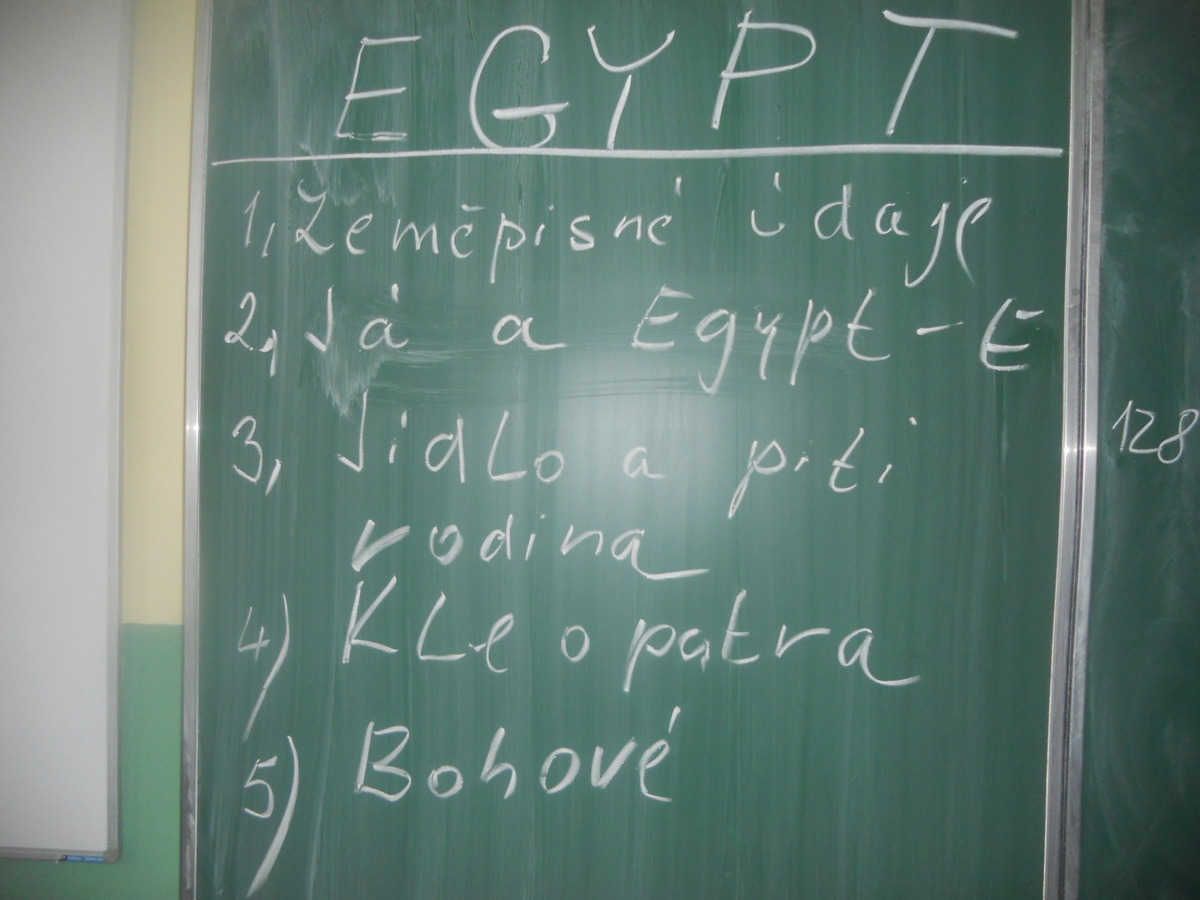 EGYPT
1, Zeměpisné údaje
2, Já a Egypt - E
3, Jídlo a pití
rodina
4) Kleopatra
5) Bohové
128